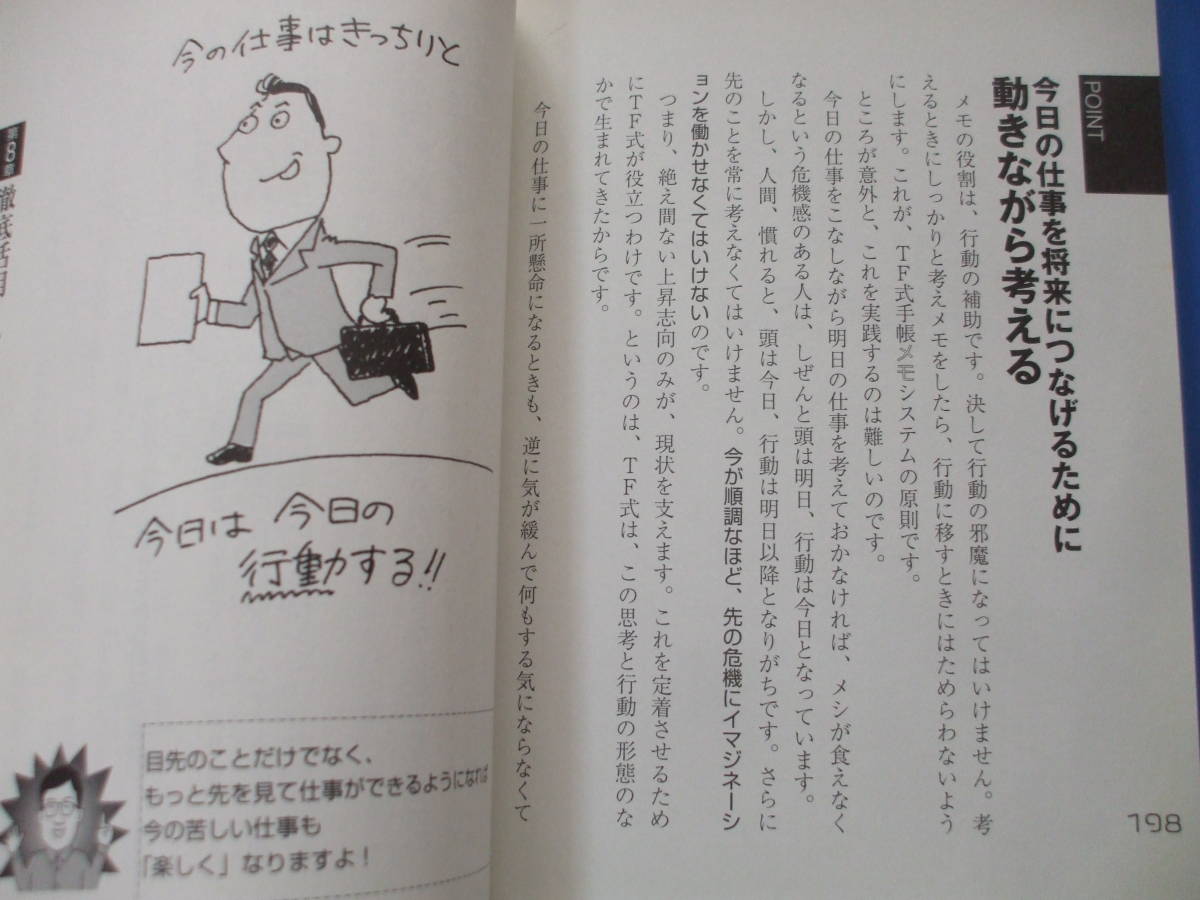 POINT
今日の仕事を将来につなげるために
動きながら考える
メモの役割は、行動の補助です。決して行動の邪魔になってはいけません。考
えるときにしっかりと考えメモをしたら、行動に移すときにはためらわないよう
にします。これが、TF式手帳メモシステムの原則です。
ところが意外と、これを実践するのは難しいのです。
今日の仕事をこなしながら明日の仕事を考えておかなければ、メシが食えなく
なるという危機感のある人は、しぜんと頭は明日、行動は今日となっています。
しかし、人間、慣れると、頭は今日、行動は明日以降となりがちです。さらに
先のことを常に考えなくてはいけません。今が順調なほど、先の危機にイマジネーシ
ョンを働かせなくてはいけないのです。
つまり、絶え間ない上昇志向のみが、現状を支えます。これを定着させるため
にTF式が役立つわけです。というのは、TF式は、この思考と行動の形態のな
かで生まれてきたからです。
今日の仕事に一所懸命になるときも、逆に気が緩んで何もする気にならなくて
198
今の仕事はきっちりと
今日は 今日の
行動する!!
目先のことだけでなく、
もっと先を見て仕事ができるようになれば
今の苦しい仕事も
「楽しく」なりますよ！
第8章
徹底活用